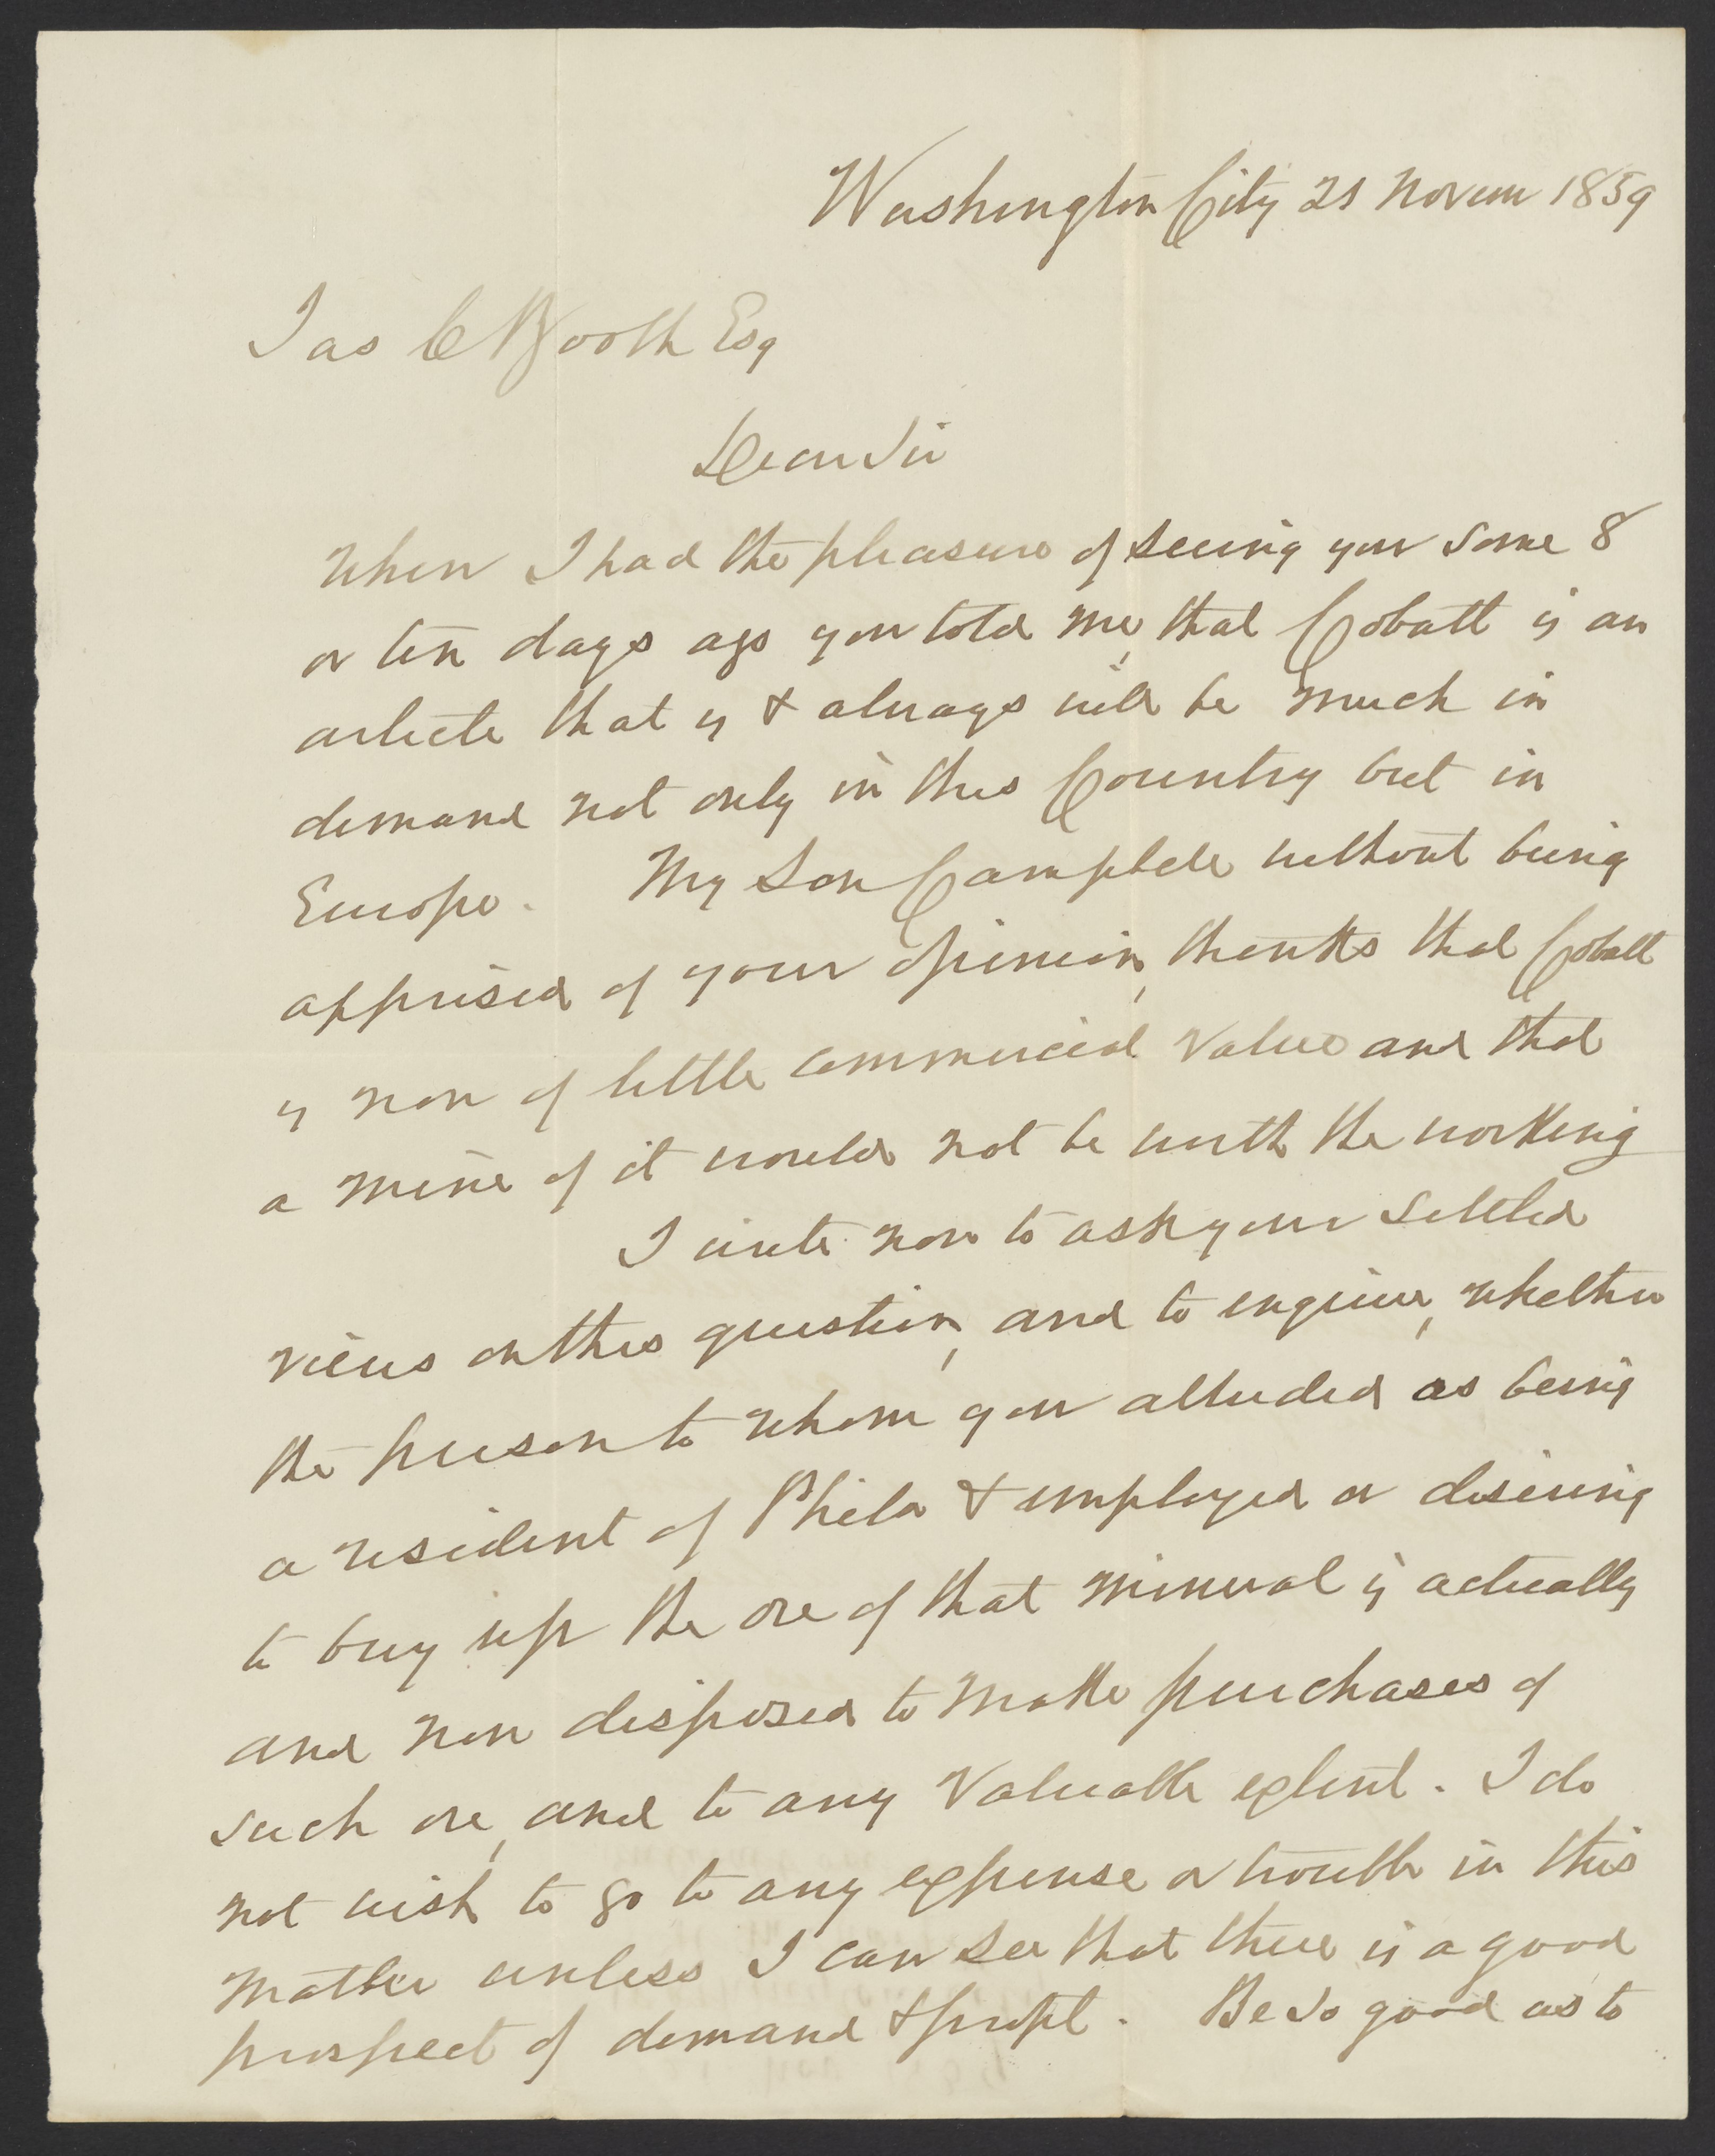 Washington City 21 Novem 1859
Jas C Booth Esq
Dear Sir
When I had the pleasure of seeing you some 8
or ten days ago you told me, that Cobalt is an
article that is & always will be much in
demand not only in this Country but in
Europe. My Son Campbell without being
apprised of your opinion, thinks that Cobalt
is now of little commercial value and that
a mine of it would not be worth the working
I write now to ask your settled
views on this question, and to enquire, whether
the person to whom you alluded as being
a resident of Phila & employed or desiring
to buy up the ore of that mineral is actually
and now disposed to make purchases of
such ore, and to any valuable extent. I do
not wish to go to any expense or trouble in this
matter unless I can see that there is a good
prospect of demand & profit. Be so good as to